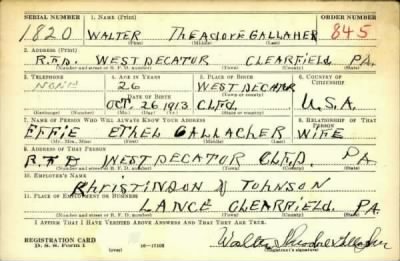 SERIAL NUMBER 1. NAME (Print) ORDER NUMBER
1820 WALTER THEADORE GALLAHER 845
(First) (Middle) (Last)
2. ADDRESS (Print)
R.F.D. WEST DECATOR CLEARFIELD PA.
(Number and street or R. F. D. number) (Town) (County) (State)
3. TELEPHONE 4. AGE IN YEARS 5. PLACE OF BIRTH 6. COUNTRY OF CITIZENSHIP
NONE 26 WEST DECATOR
DATE OF BIRTH
OCT. 26 1913 CLFD. U.S.A.
(Mo.) (Day) (Yr.) (State or country)
7. NAME OF PERSON WHO WILL ALWAYS KNOW YOUR ADDRESS 8. RELATIONSHIP OF THAT PERSON
EFFIE ETHEL GALLACHER WIFE
(Mr., Mrs., Miss) (First) (Middle) (Last)
9. ADDRESS OF THAT PERSON
R.F.D WEST DECATOR CLFD. PA
(Number and street or R. F. D. number) (Town) (County) (State)
10. EMPLOYER'S NAME
JOHNSON
11. PLACE OF EMPLOYMENT OR BUSINESS
LANCE CLEARFIELD. PA.
(Number and street or R. F. D. number) (Town) (County) (State)
I AFFIRM THAT I HAVE VERIFIED ABOVE ANSWERS AND THAT THEY ARE TRUE.
REGISTRATION CARD
D. S. S. Form 1 (over) Walter Theadore Gallaher
(Registrant's signature)